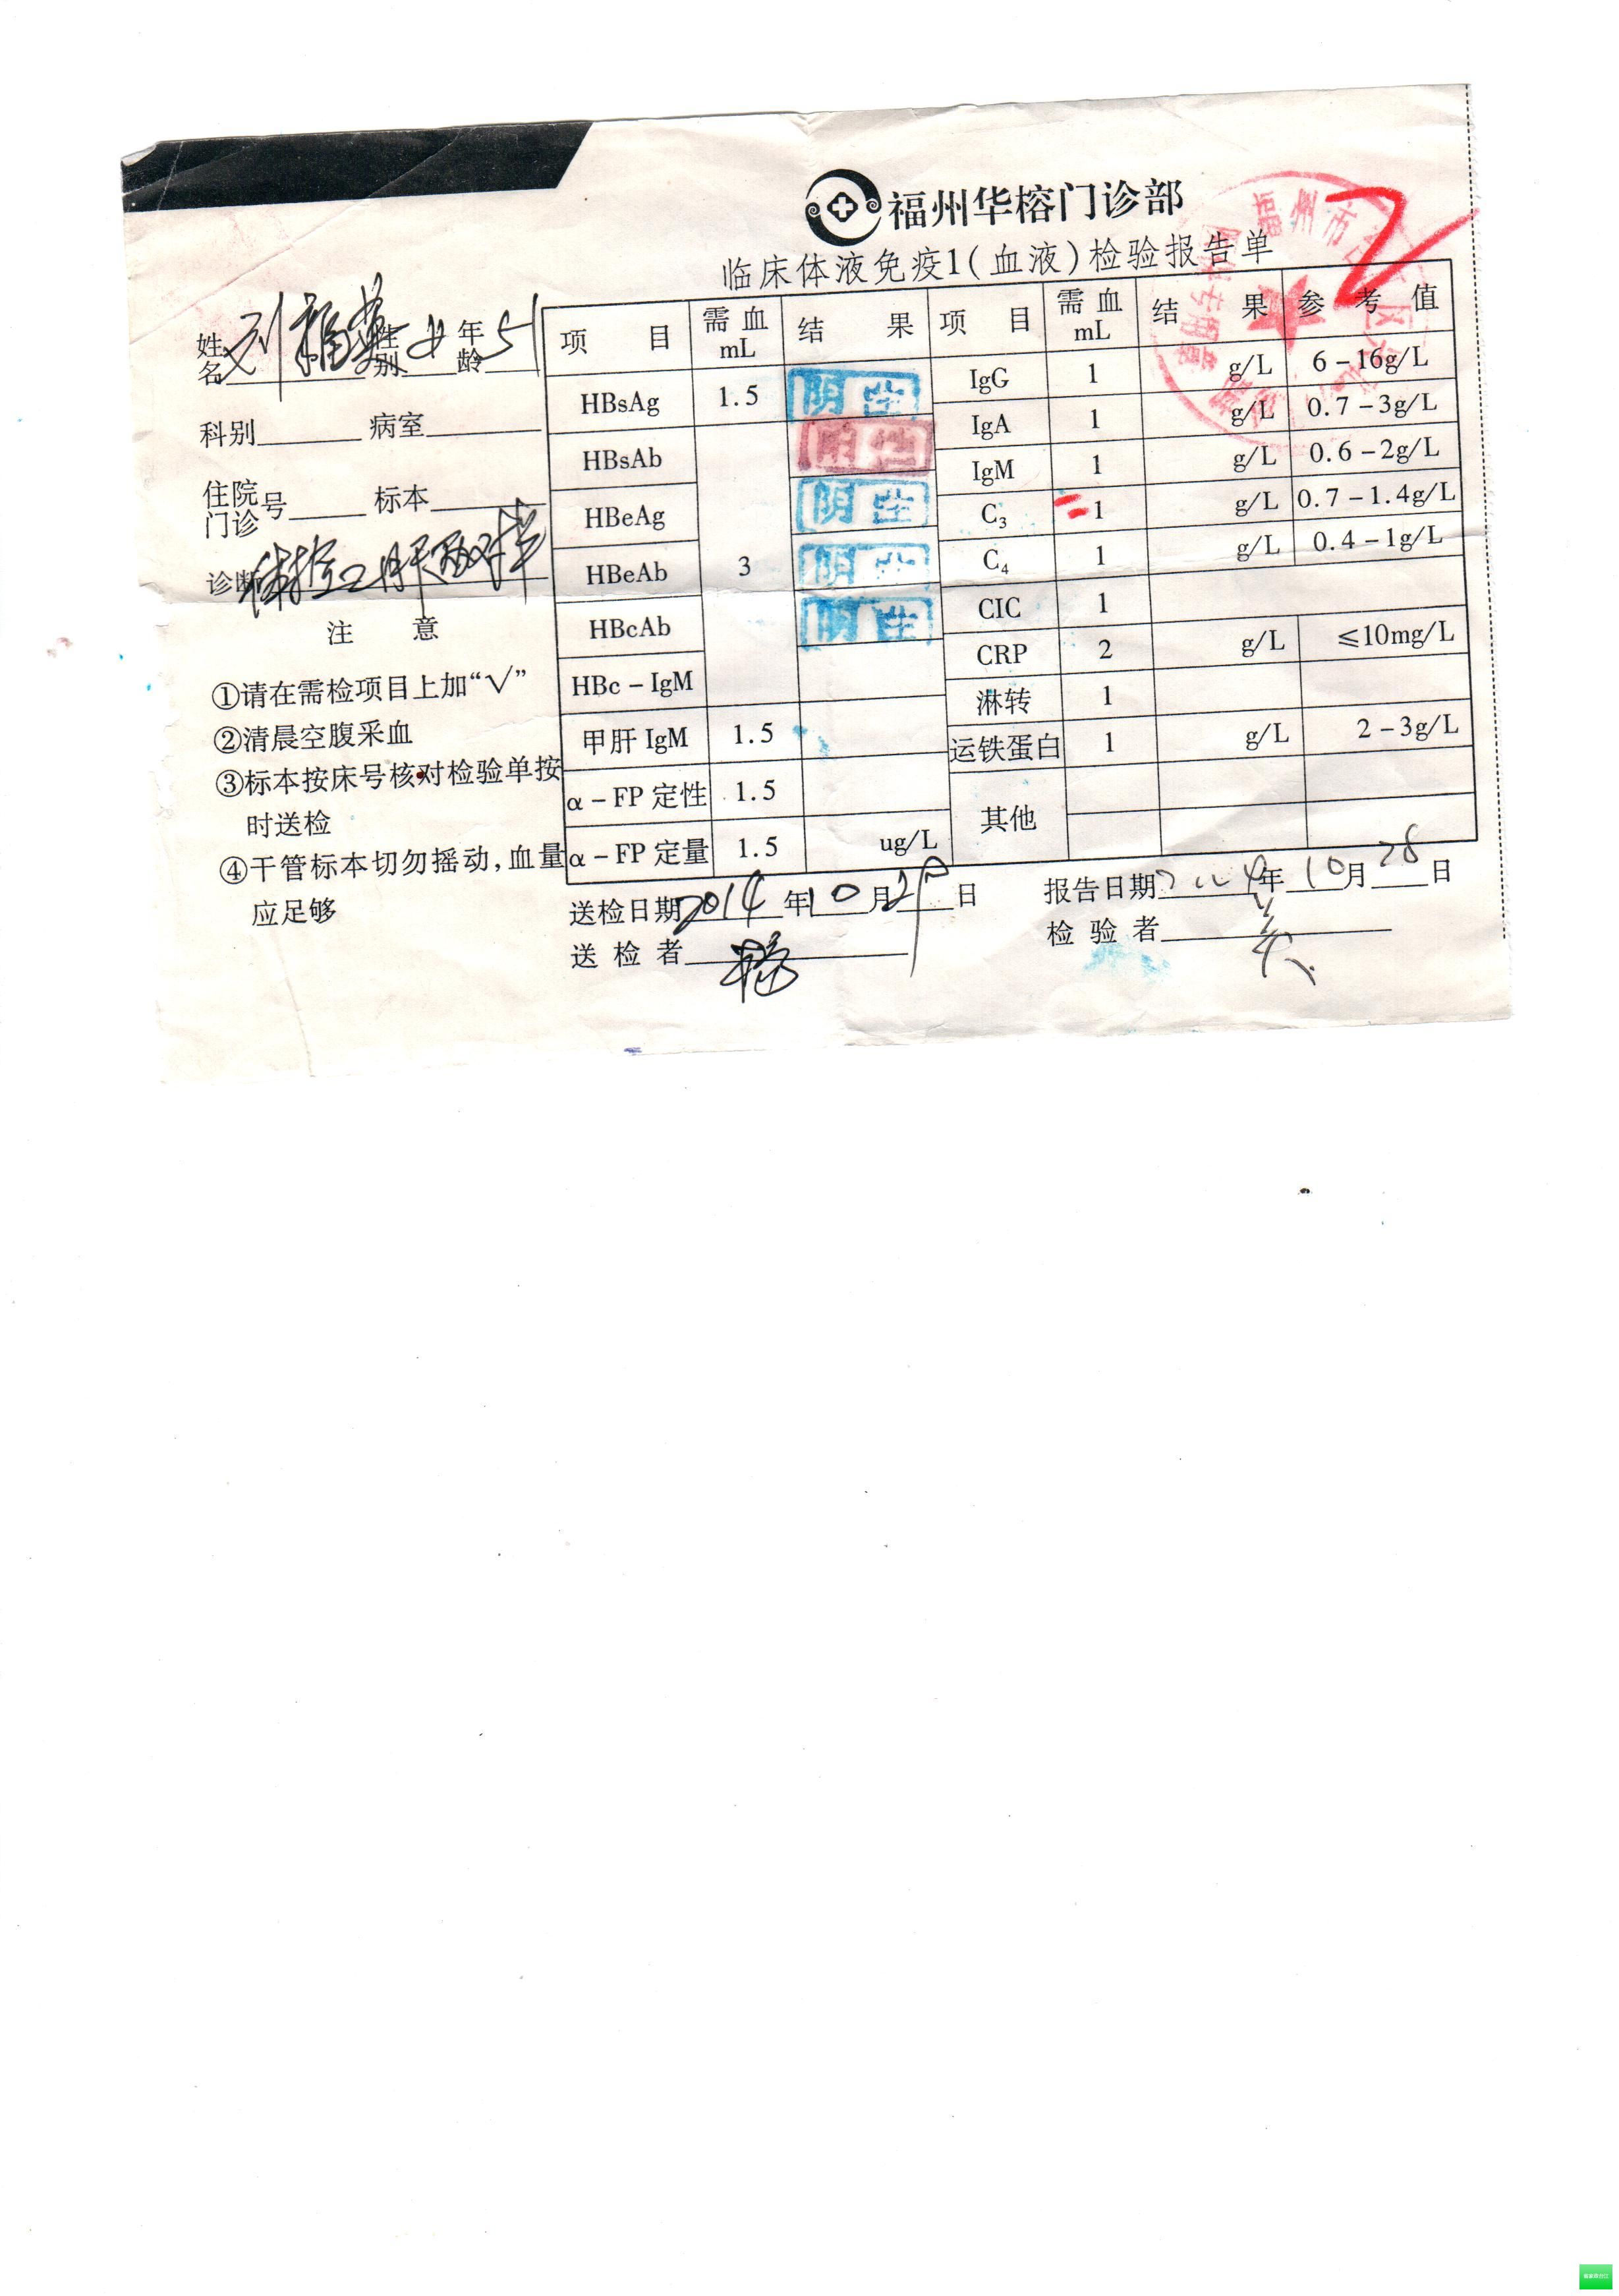 福州华榕门诊部
临床体液免疫1(血液)检验报告单
姓名 刘 性别 女 年龄 51
科别 病室
住院 门诊 号 标本
诊断 肝两对半
注 意
①请在需检项目上加“√”
②清晨空腹采血
③标本按床号核对检验单按
时送检
④干管标本切勿摇动,血量
应足够
项 目 需血 mL 结 果 项 目 需血 mL 结 果 参 考 值
HBsAg 1.5 阴性 IgG 1 g/L 6-16g/L
HBsAb IgA 1 g/L 0.7-3g/L
IgM 1 g/L 0.6-2g/L
HBeAg 阴性 C3 1 g/L 0.7-1.4g/L
HBeAb 3 阴性 C4 1 g/L 0.4-1g/L
HBcAb 阴性 CIC 1
CRP 2 g/L ≤10mg/L
HBc-IgM 淋转 1
甲肝 IgM 1.5 运铁蛋白 1 g/L 2-3g/L
α-FP 定性 1.5 其他
α-FP 定量 1.5 ug/L
送检日期 2014 年 10 月 日 报告日期 2014 年 10 月 28 日
送 检 者 检 验 者